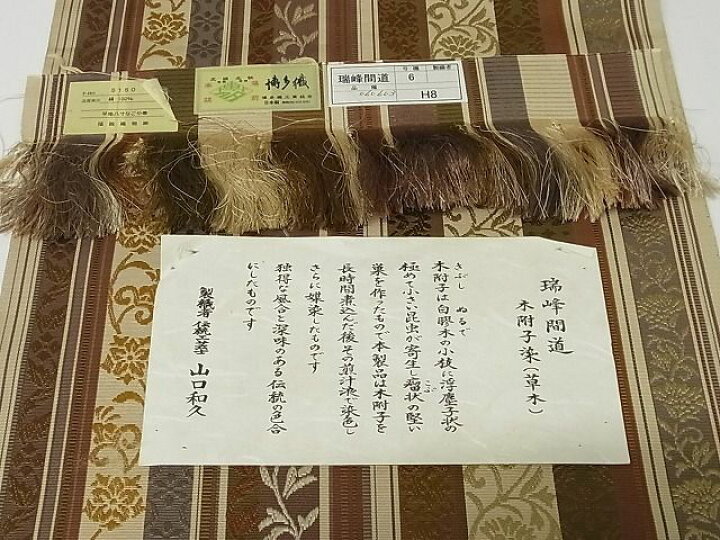 5160
絹 100%
博多織
瑞峰間道
6
H8
瑞峰間道
木附子染(草木)
きぶし ぬるで
木附子は白膠木の小枝に浮塵子状の
極めて小さい昆虫が寄生し瘤状の堅い
こぶ
巣を作ったもので本製品は木附子を
長時間煮込んだ後その煎汁染で染色し
さらに媒染したものです
独得な風合と深味のある伝統の色合
にしたものです
製織者 伝統工芸士 山口和久